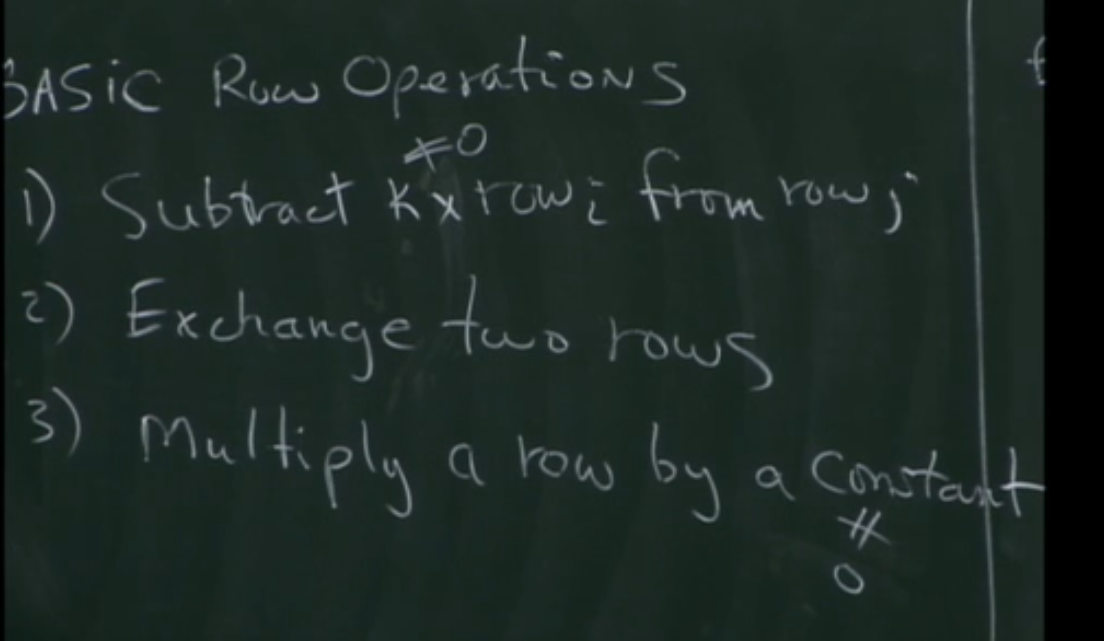 BASiC Row OperatioNS
≠0
1) Subtract k x row i from row j
2) Exchange two rows
3) Multiply a row by a constant
≠
0